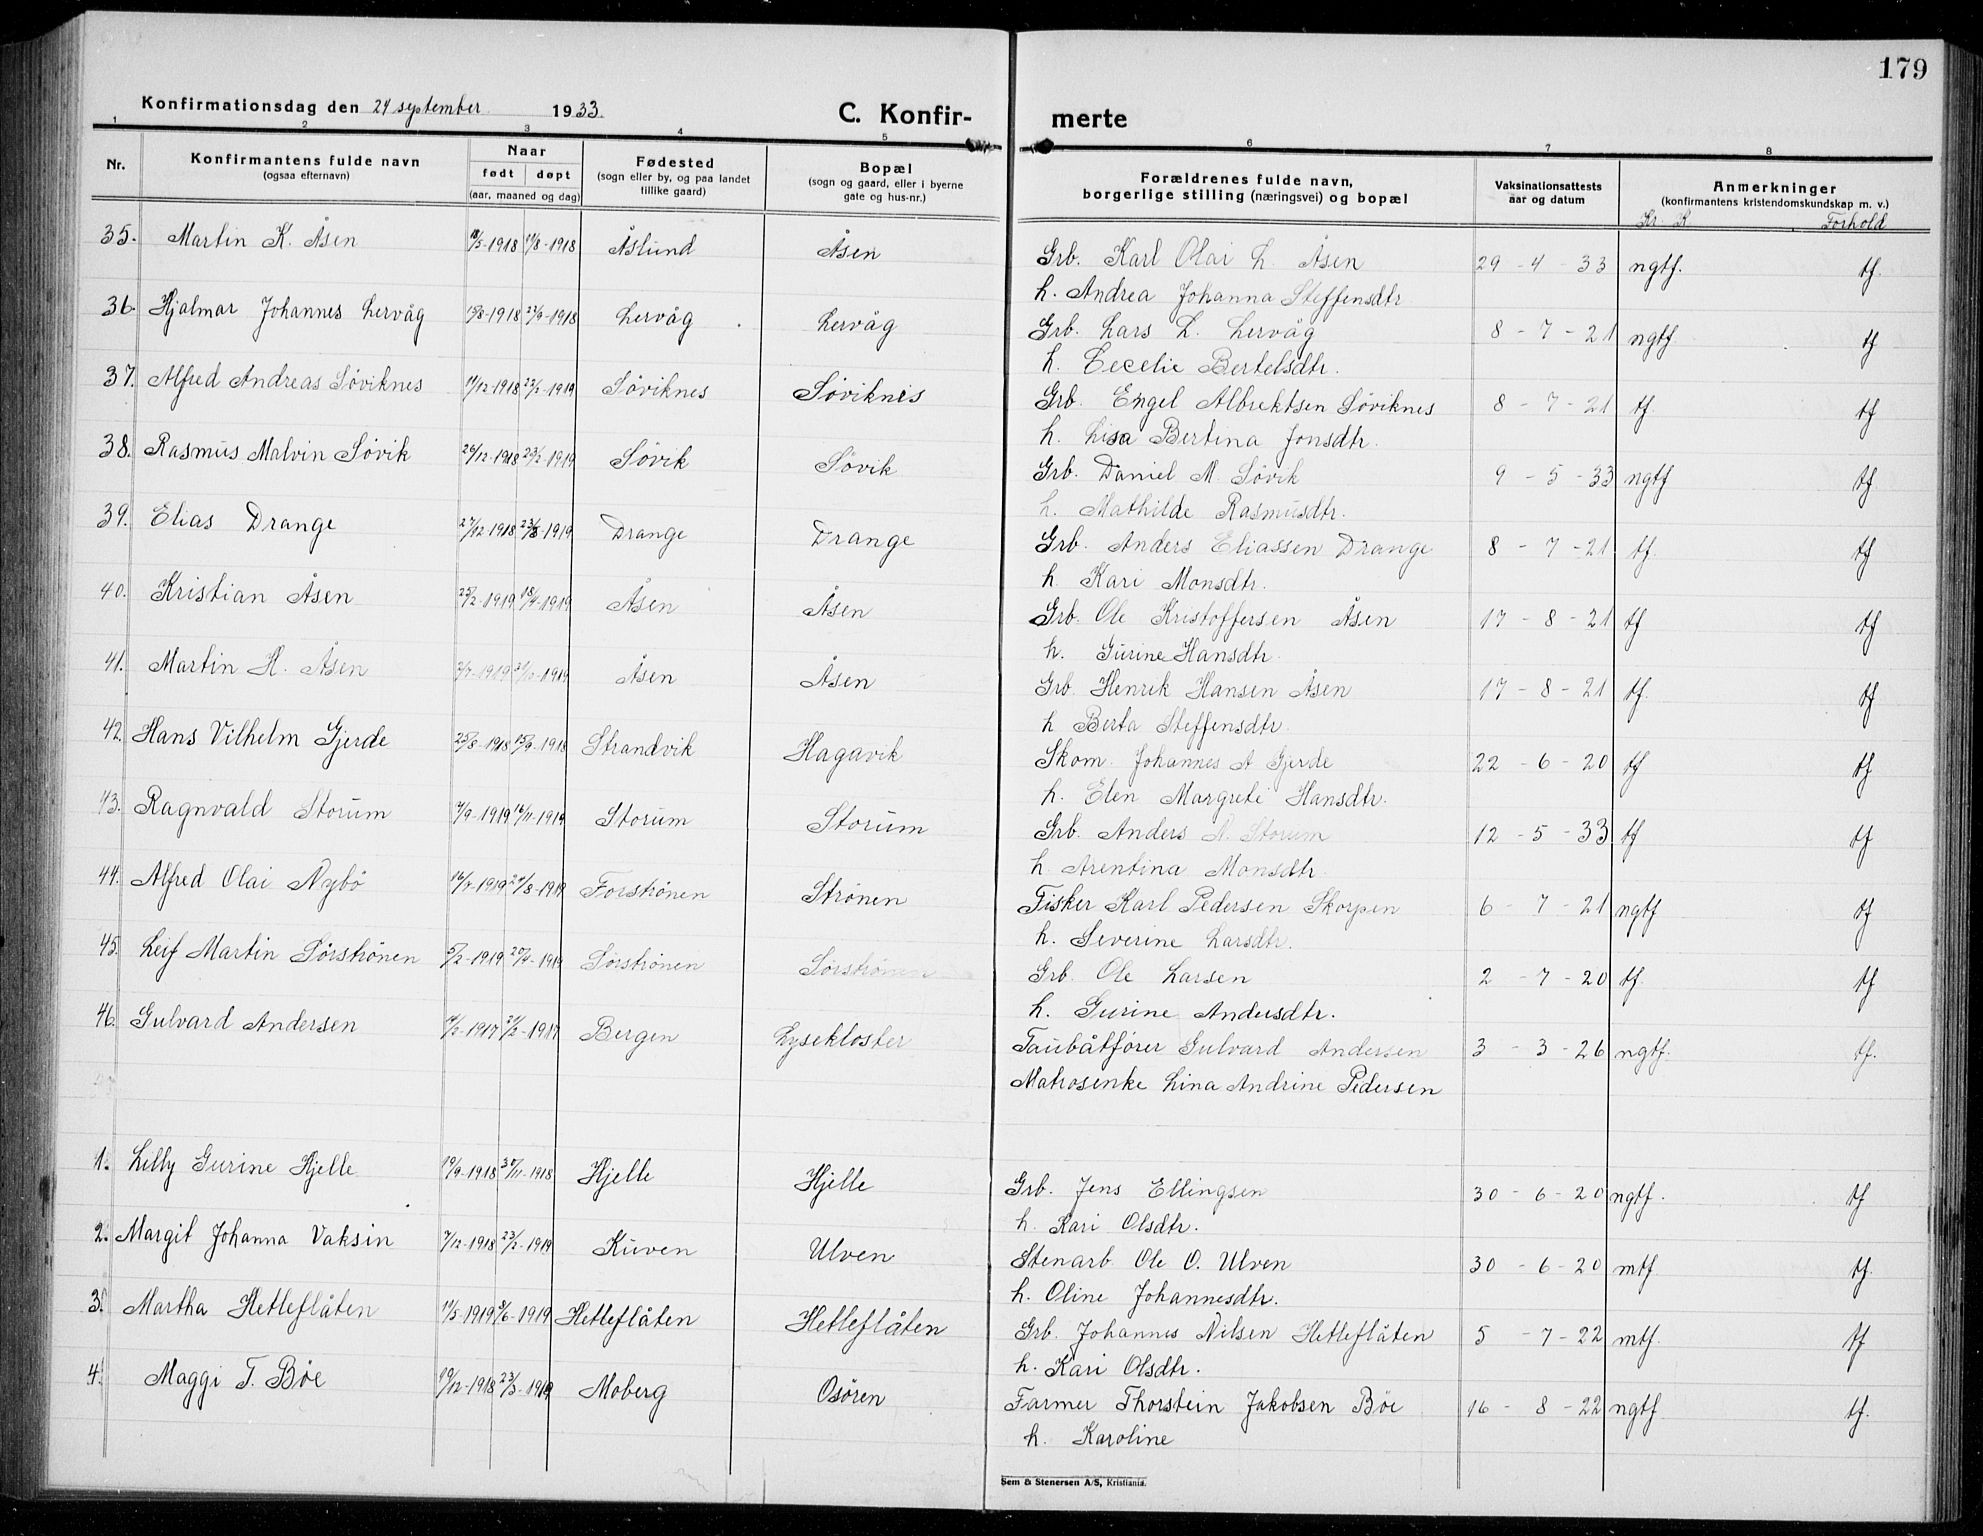 179
Konfirmationsdag den 24 september 1933. C. Konfir- merte
1 2 3 4 5 6 7 8
Nr. Konfirmantens fulde navn (ogsaa efternavn) Naar født døpt (aar, maaned og dag) Fødested (sogn eller by, og paa landet tillike gaard) Bopæl (sogn og gaard, eller i byerne gate og hus-nr.) Forældrenes fulde navn, borgerlige stilling (næringsvei) og bopæl Vaksinationsattests aar og datum Anmerkninger (konfirmantens kristendomskundskap m. v.)
Kr. K. Forhold
35. Martin K. Åsen 18/5-1918 11/8-1918 Åslund Åsen Grb. Karl Olai L. Åsen 29-4-33 ngtf. tf.
h. Andrea Johanna Steffensdtr
36. Hjalmar Johannes Lervåg 1918 1918 Lervåg Lervåg Grb. Lars L. Lervåg 8-7-21 ngtf tf
h. Cecelie Bertelsdtr.
37. Alfred Andreas Søviknes 11/12-1918 23/2-1919 Søviknes Søviknes Grb. Engel Albrektsen Søviknes 8-7-21 tf. tf
h. Lisa Bertina Jonsdtr.
38. Rasmus Malvin Søvik 26/12-1918 23/2-1919 Søvik Søvik Grb. Daniel M. Søvik 9-5-33 ngtf tf
h. Mathilde Rasmusdtr.
39. Elias Drange 27/12-1918 23/3-1919 Drange Drange Grb. Anders Eliassen Drange 8-7-21 tf. tf
h. Kari Monsdtr.
40. Kristian Åsen 25/2-1919 18/4-1919 Åsen Åsen Grb. Ole Kristoffersen Åsen 17-8-21 tf tf
h. Gurine Hansdtr
41. Martin H. Åsen 1919 1919 Åsen Åsen Grb. Henrik Hansen Åsen 17-8-21 tf. tf
h Berta Steffensdtr.
42. Hans Vilhelm Gjerde 25/8-1918 15/9-1918 Strandvik Hagavik Skom. Johannes A Gjerde 22-6-20 tf tf
h. Elen Margrete Hansdtr.
43. Ragnvald Storum 1919 16/11-1919 Storum Storum Grb. Anders A. Storum 12-5-33 tf tf
h. Arentina Monsdtr.
44. Alfred Olai Nybø 1919 24/8-1919 Forstrønen Strønen Fisker Karl Pedersen Skorpen 6-7-21 ngtf tf
h. Severine Larsdtr.
45. Leif Martin Sørstrønen 5/2-1919 20/4-1919 Sørstrønen Sørstrønen Grb. Ole Larsen 2-7-20 tf. tf
h. Gurine Andersdtr.
46. Gulvard Andersen 1917 1917 Bergen Lysekloster Taubåtfører Gulvard Andersen 3-3-26 ngtf. tf.
Matrosenke Lina Andrine Pedersen
1. Lilly Gurine Hjelle 19/9-1918 30/11-1918 Hjelle Hjelle Grb. Jens Ellingsen 30-6-20 ngtf. tf
h. Kari Olsdtr.
2. Margit Johanna Vaksin 7/12-1918 23/2-1919 Kuven Ulven Stenarb. Ole O. Ulven 30-6-20 mtf. tf.
h. Oline Johannesdtr.
3. Martha Hetleflåten 11/5-1919 9/6-1919 Hetleflåten Hetleflåten Grb. Johannes Nilsen Hetleflåten 5-7-22 mtf. tf
h. Kari Olsdtr.
4. Maggi T. Bøe 19/12-1918 23/3-1919 Moberg Osøren Farmer Thorstein Jakobsen Bøe 16-8-22 ngtf tf.
h. Karoline
Sem & Stenersen A/S, Kristiania.